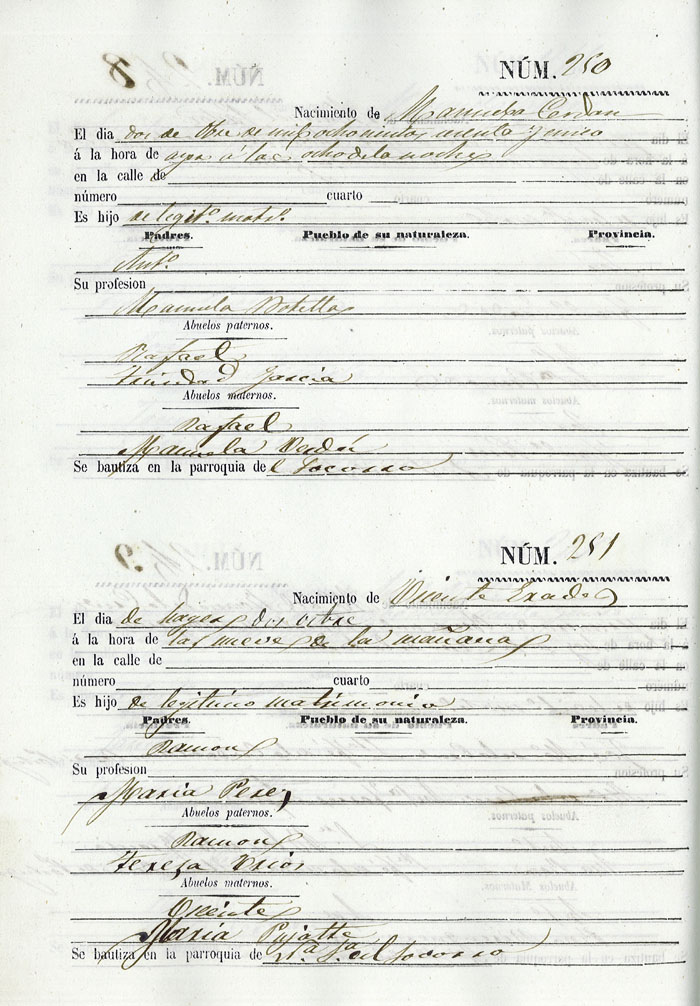 NÚM. 250
Nacimiento de Manuela Cerdan
El dia dos de 8bre de mil ochocientos y cinco
á la hora de ayer á las ocho de la noche
en la calle de
número cuarto
Es hijo de legit.º matr.º
Padres. Pueblo de su naturaleza. Provincia.
Ant.º
Su profesion
Manuela Botella
Abuelos paternos.
Rafael
Trinidad Garcia
Abuelos maternos.
Rafael
Manuela Verdú
Se bautiza en la parroquia del Socorro
NÚM. 251
Nacimiento de Vicente
El dia de hayer dos
á la hora de las nueve de la mañana
en la calle de
número cuarto
Es hijo de legitimo matrimonio
Padres. Pueblo de su naturaleza. Provincia.
Ramon
Su profesion
Maria Perez
Abuelos paternos.
Ramon
Tereza Rios
Abuelos maternos.
Vicente
Maria
Se bautiza en la parroquia de del Socorro